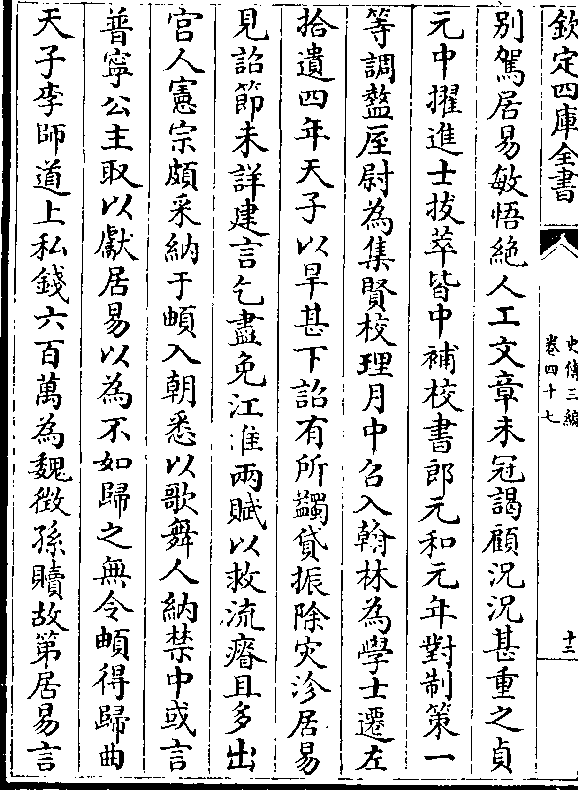 欽定四庫全書
史傳三編
卷四十七
十三
別駕居易敏悟絶人工文章未冠謁顧況況甚重之貞
元中擢進士拔萃皆中補校書郎元和元年對制策一
等調盩厔尉為集賢校理月中召入翰林為學士遷左
拾遺四年天子以旱甚下詔有所蠲貸振除灾沴居易
見詔節未詳建言乞盡免江淮兩賦以救流瘠且多出
宫人憲宗頗采納于頔入朝悉以歌舞人納禁中或言
普寧公主取以獻居易以為不如歸之無令頔得歸曲
天子李師道上私錢六百萬為魏徵孫贖故第居易言